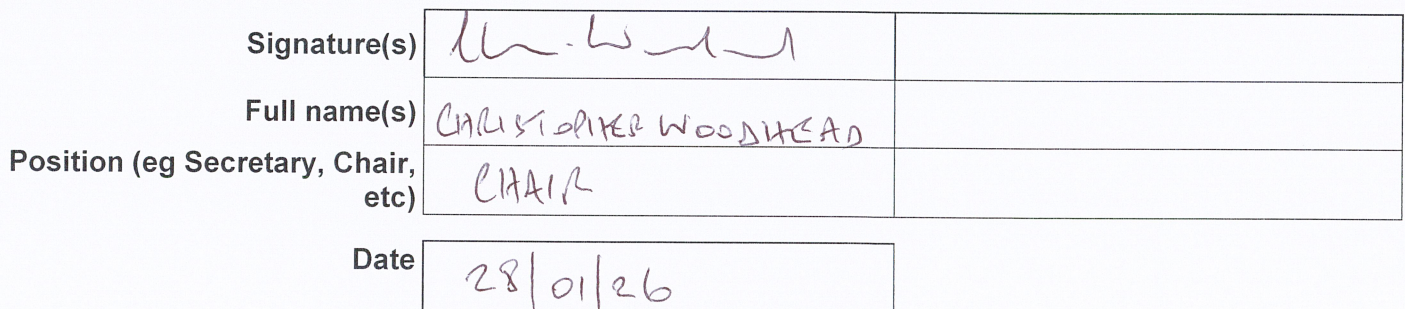 Signature(s)
Full name(s) CHRISTOPHER WOODHEAD
Position (eg Secretary, Chair,
etc) CHAIR
Date 28/01/26